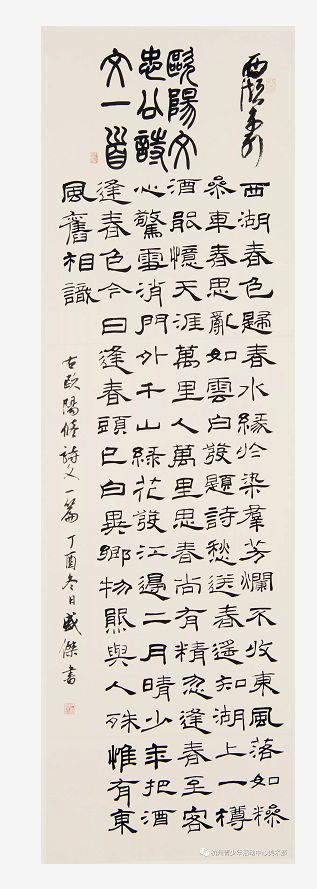 西湖系列
歐陽文
忠公詩
文一首
西湖春色歸春水緑於染羣芳爛不收東風落如糝
叅車春思亂如雲白發題詩愁送春遥知湖上一樽
酒能憶天涯萬里人萬里思春尚有精忽逢春至客
心驚雪消門外千山緑花發江邊二月晴少年把酒
逢春色今日逢春頭已白異鄉物熙與人殊惟有東
風舊相識
右歐陽脩詩文一篇丁酉冬日盛傑書
杭州青少年活动中心美术部